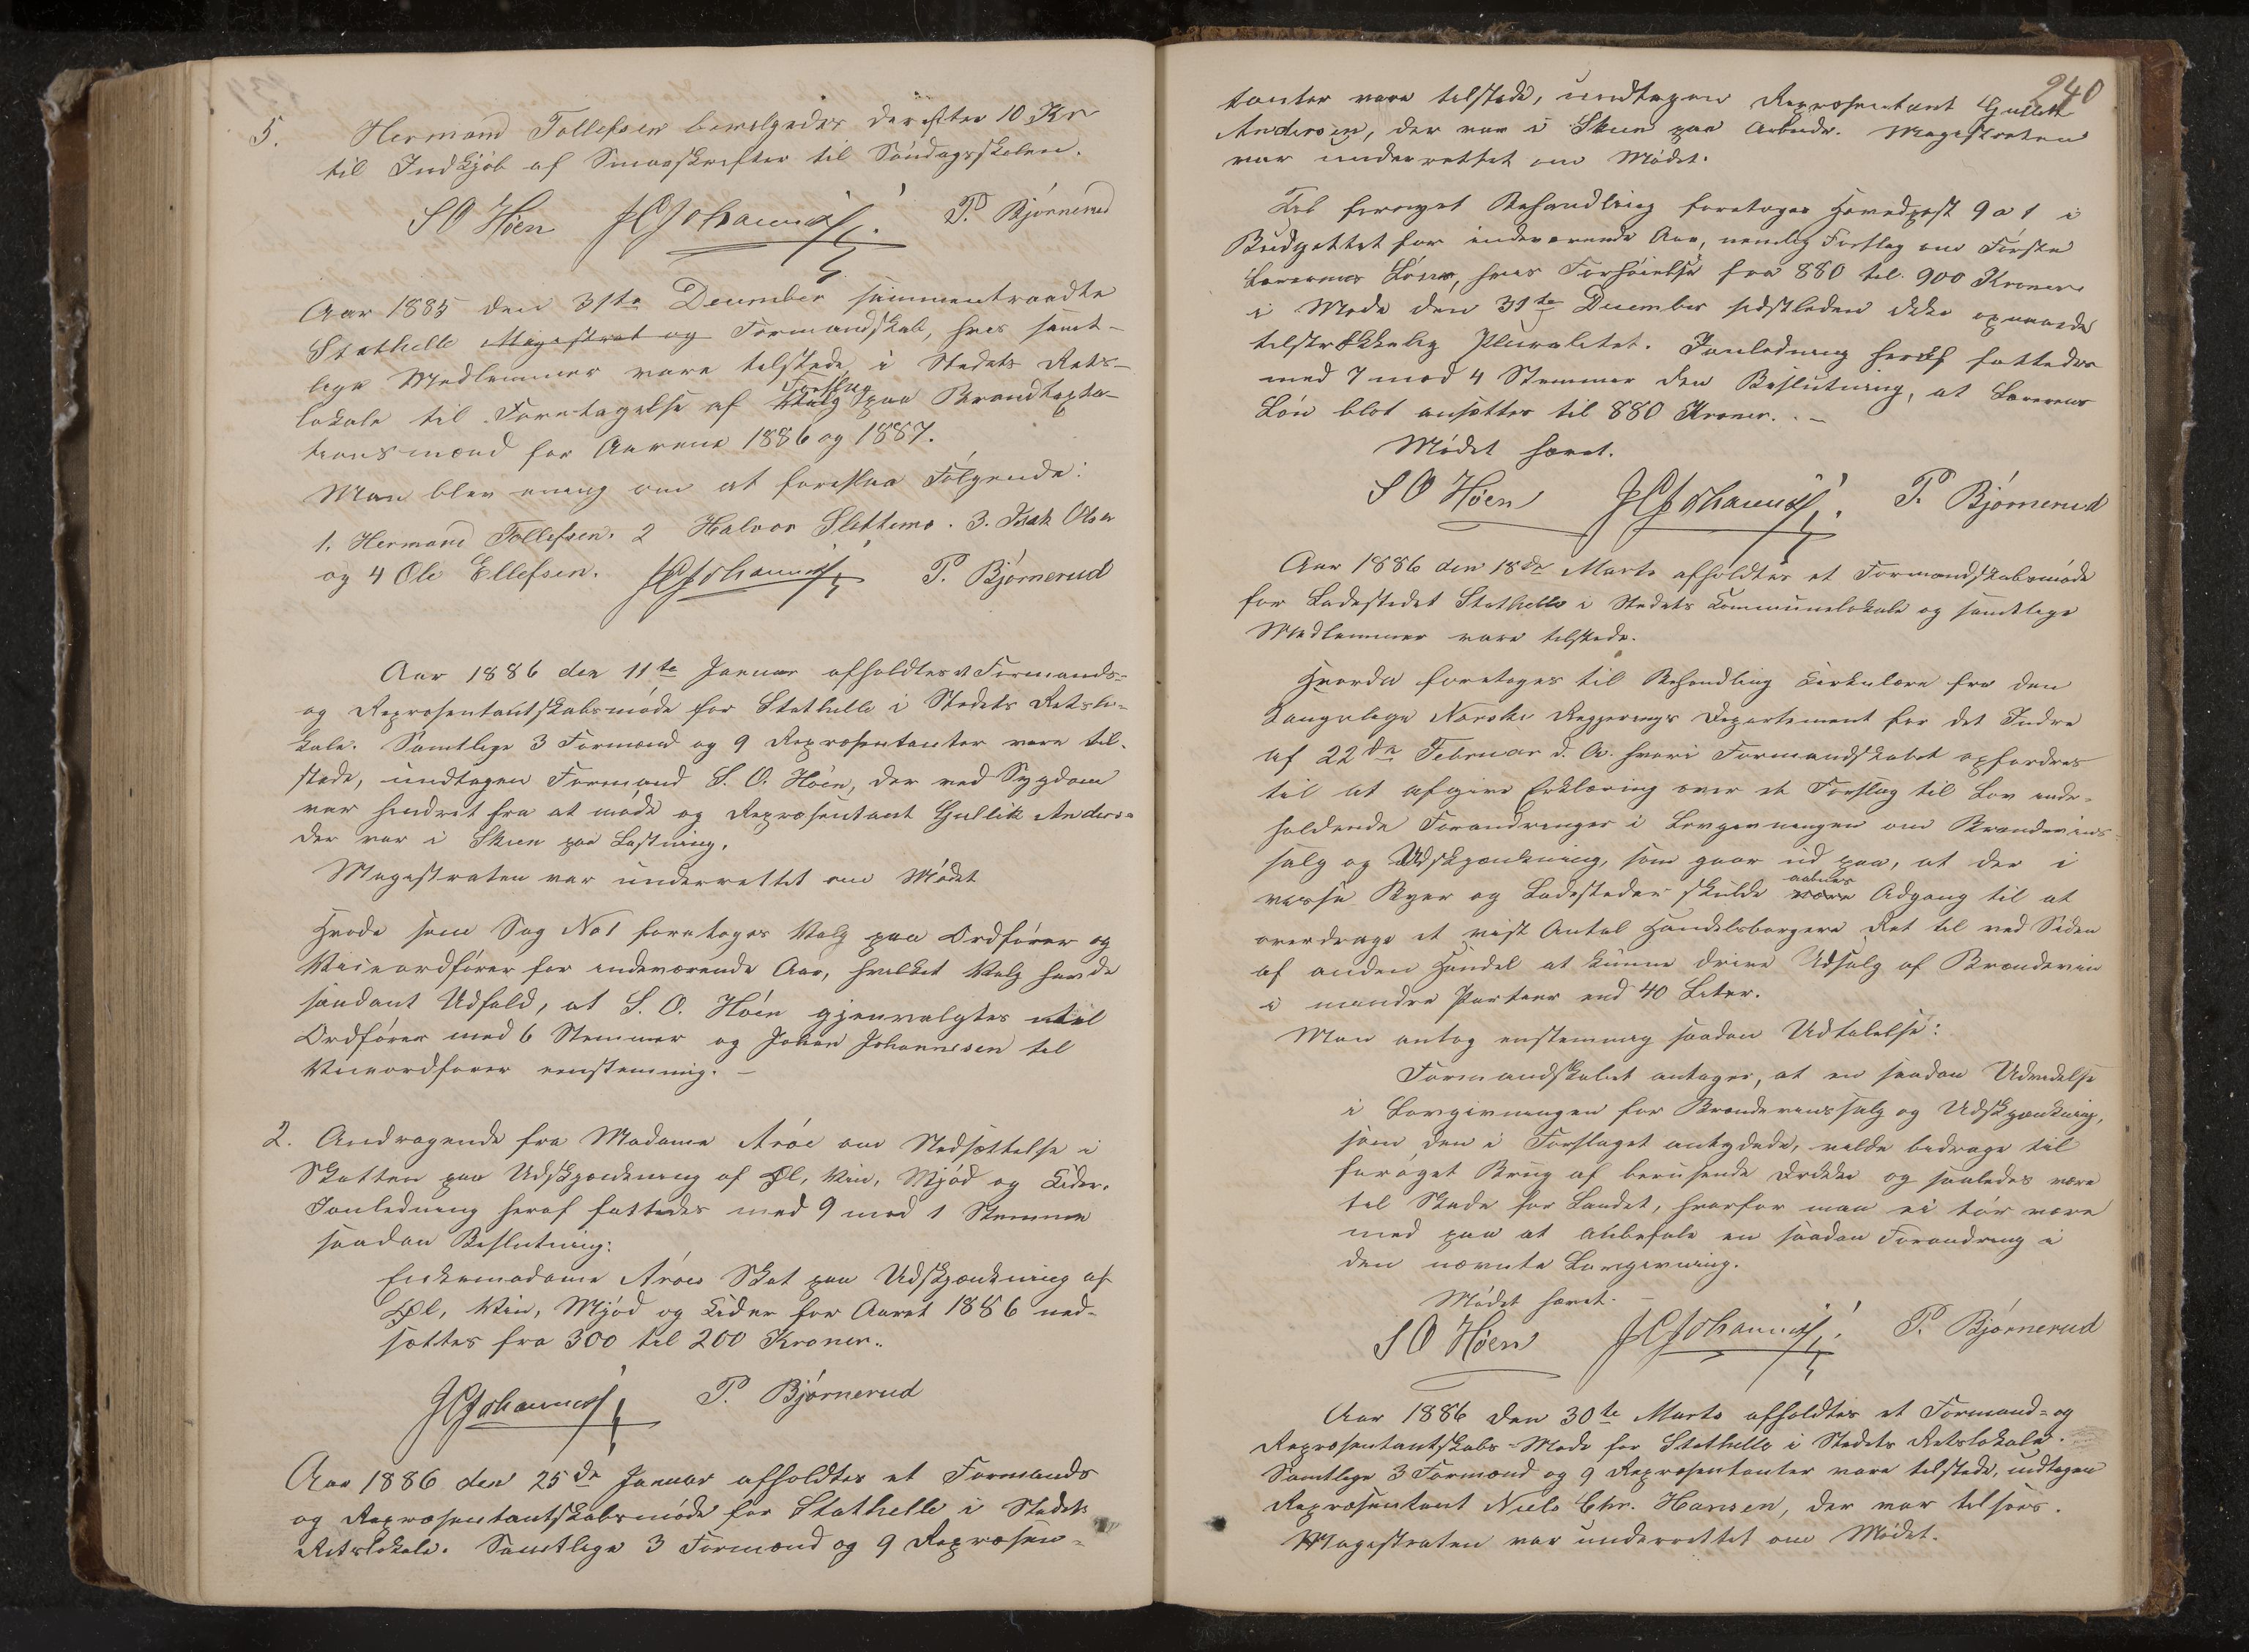 5. Hermand Tollefsen bevilgedes derefter 10 Kr
til Indkjöb af Smaaskrifter til Söndagsskolen.
S O Höen JCJohannes P. Bjørnerud
Aar 1885 den 31te December sammentraadte
Stathelle Magistrat og Formandskab, hvis samt-
lige Medlemmer vare tilstede, i Stedets Rets-
lokale til Foretagelse af Valg Forslag paa Brandtaxta-
tionsmænd for Aarene 1886 og 1887.
Man blev enig om at foreslaa Fölgende:
1. Hermand Tollefsen. 2 Halvor Slettemo. 3. Isak Olsen
og 4 Ole Ellefsen. JCJohannes P. Bjørnerud
Aar 1886 den 11te Januar afholdtes et Formands-
og Repræsentantskabsmöde for Stathelle i Stedets Retslo-
kale. Samtlige 3 Formænd og 9 Repræsentanter vare til-
stede, undtagen Formand S. O. Höen, der ved Sygdom
var hindret fra at möde og Repræsentant Gullik Anders-
der var i Skien paa Lastning.
Magistraten var underrettet om Mödet
Hvoda som Sag No 1 foretoges Valg paa Ordförer og
Viceordförer for indeværende Aar, hvilket Valg havde
saadant Udfald, at S. O. Höen gjenvalgtes til
Ordförer med 6 Stemmer og Johan Johannesen til
Viceordförer eenstemmig. —
2. Andragende fra Madame Aröe om Nedsættelse i
Skatten paa Udskjænkning af Øl, Vin, Mjöd og Cider.
I Anledning heraf fattedes med 9 mod 1 Stemme
saadan Beslutning:
Enkemadame Aröes Skat paa Udskjænkning af
Øl, Vin, Mjöd og Cider for Aaret 1886 ned-
sættes fra 300 til 200 Kroner.
JCJohannes P. Bjørnerud
Aar 1886 den 25de Januar afholdtes et Formands
og Repræsentantskabsmöde for Stathelle i Stedets
Retslokale. Samtlige 3 Formænd og 9 Repræsen-
240
tanter vare tilstede, undtagen Repræsentant Gullik
Andersen, der var i Skien paa Arbeide. Magistraten
var underrettet om Mödet.
Til fornyet Behandling foretoges Hovedpost 9 a 1 i
Budgettet for indeværende Aar, nemlig Forslag om Förste
Lærerens Lön, hvis Forhöielse fra 880 til 900 Kroner
i Möde den 31te December sidstleden ikke opnaaede
tilstrækkelig Pluralitet. I Anledning heraf fattedes
med 7 mod 4 Stemmer den Beslutning, at Lærerens
Lön blot ansættes til 880 Kroner. —
Mödet hævet.
S O Höen JCJohannes P. Bjørnerud
Aar 1886 den 18de Marts afholdtes et Formandskabsmöde
for Ladestedet Stathelle i Stedets Communelokale og samtlige
Medlemmer vare tilstede.
Hvorda foretoges til Behandling Cirkulære fra den
Kongelige Norske Regjerings Departement for det Indre
af 22de Februar d. A. hvori Formandskabet opfordres
til at afgive Erklæring over et Forslag til Lov inde-
holdende Forandringer i Lovgivningen om Brændevins-
salg og Udskjænkning, som gaar ud paa, at der i
visse Byer og Ladesteder skulde være aabnes Adgang til at
overdrage et vist Antal Handelsborgere Ret til ved Siden
af anden Handel at kunne drive Udsalg af Brændevin
i mindre Partier end 40 Liter.
Man antog enstemmig saadan Udtalelse:
Formandskabet antager, at en saadan Udvidelse
i Lovgivningen for Brændevinssalg og Udskjænkning,
som den i Forslaget antydede, vilde bidrage til
foröget Brug af berusende Drikke og saaledes være
til Skade for Landet, hvorfor man ei tör være
med paa at anbefale en saadan Forandring i
den nævnte Lovgivning.
Mödet hævet. —
S O Höen JCJohannes P. Bjørnerud
Aar 1886 den 30te Marts afholdtes et Formand- og
Repræsentantskabs-Möde for Stathelle i Stedets Retslokale.
Samtlige 3 Formænd og 9 Repræsentanter vare tilstede, undtagen
Repræsentant Niels Chr. Hansen, der var tilsöes.
Magistraten var underrettet om Mödet.